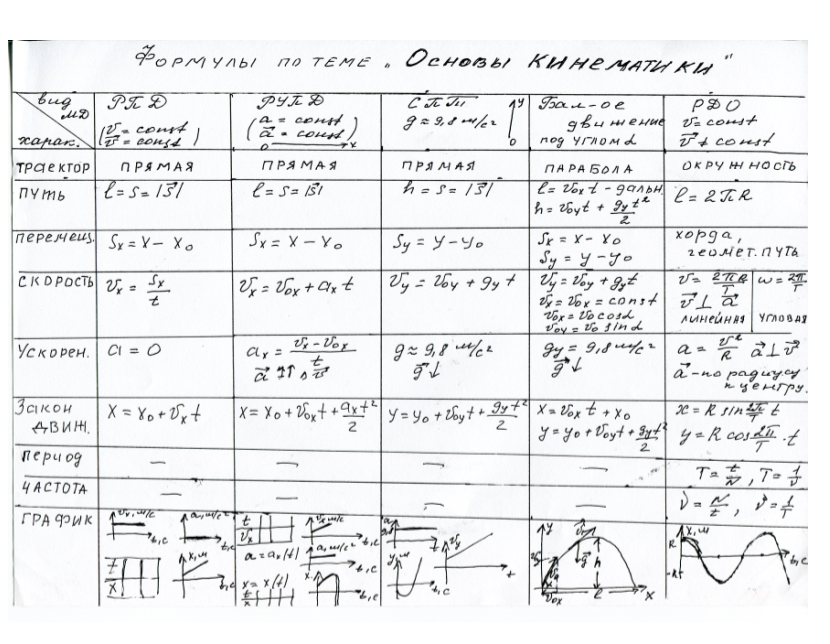 Формулы по теме „Основы кинематики"
вид МД
харак.
РПД
(v = const
v⃗ = const)
РУПД
(a = const
a⃗ = const)
0 x
СПТл
g ≈ 9,8 м/с²
y
0
Бал-ое
движение
под углом α
РДО
v = const
v⃗ ≠ const
траектор ПРЯМАЯ ПРЯМАЯ ПРЯМАЯ ПАРАБОЛА ОКРУЖНОСТЬ
ПУТЬ
l = s = |s⃗|
l = s = |s⃗|
h = s = |s⃗|
l = v₀ₓt – дальн.
h = v₀yt + gyt²/2
l = 2πR
перемещ.
Sₓ = x – x₀
Sₓ = x – x₀
Sy = y – y₀
Sₓ = x – x₀
Sy = y – y₀
хорда,
геомет. путь
СКОРОСТЬ
vₓ = Sₓ/t
vₓ = v₀ₓ + aₓt
vy = v₀y + gyt
vy = v₀y + gyt
vₓ = v₀ₓ = const
v₀ₓ = v₀ cos α
v₀y = v₀ sin α
v = 2πR/T
v⃗ ⊥ a⃗
ЛИНЕЙНАЯ
ω = 2π/T
УГЛОВАЯ
Ускорен.
a = 0
aₓ = (vₓ – v₀ₓ)/t
g ≈ 9,8 м/с²
g⃗ ↓
gy = 9,8 м/с²
g⃗ ↓
a = v²/R a⃗ ⊥ v⃗
a⃗ - по радиусу
к центру.
Закон
движ.
x = x₀ + vₓt
x = x₀ + v₀ₓt + aₓt²/2
y = y₀ + v₀yt + gyt²/2
x = v₀ₓt + x₀
y = y₀ + v₀yt + gyt²/2
x = R sin 2π/T t
y = R cos 2π/T · t
период — — — — T = t/N, T = 1/ν
ЧАСТОТА — — — — ν = N/t, ν = 1/T
ГРАФИК
vₓ, м/с
t, c
a, м/с²
t, c
x, м
t, c
t
vₓ
a = aₓ(t)
x = x(t)
t
x
vₓ м/с
t, c
a, м/с²
x
t, c
t, c
vy
t
y, м
t, c
y
g⃗
h
v₀ₓ
l
x
x, м
R
-R
t, c